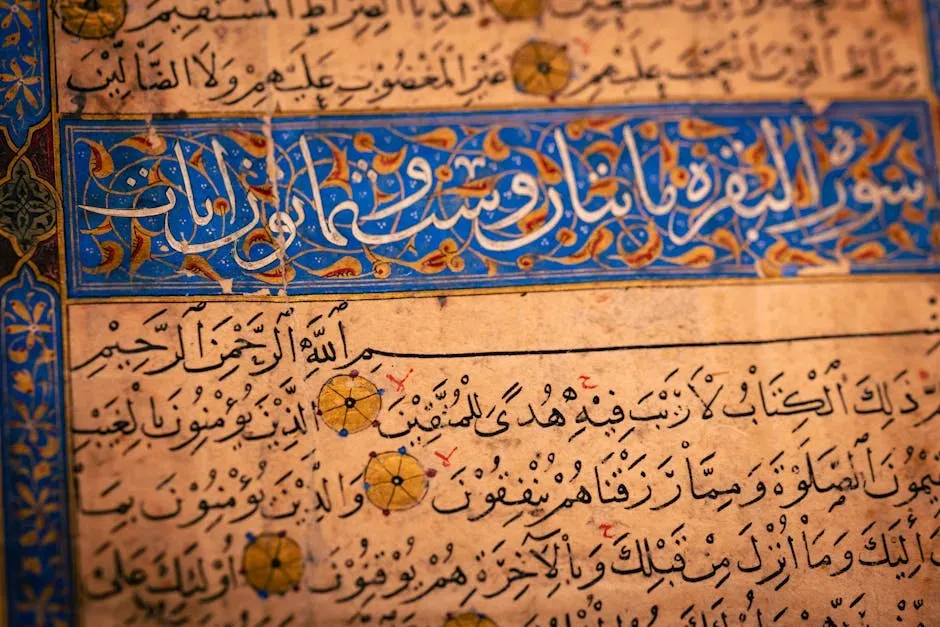 اهدنا الصراط المستقيم
صراط الذين انعمت عليهم غير المغضوب عليهم ولا الضالين
سورة البقرة مائتان وست وثمانون ايات
ـم ٱللَّهِ ٱلرَّحْمَنِ ٱلرَّحِيْمِ
ذَلِكَ ٱلْكِتَابُ لَا رَيْبَ فِيْهِ هُدًى لِلْمُتَّقِيْنَ ۝ الَّذِيْنَ يُؤْمِنُوْنَ بِالْغَيْبِ
ـيمُونَ ٱلصَّلَوٰةَ وَمِمَّا رَزَقْنَاهُمْ يُنْفِقُوْنَ ۝ وَالَّذِيْنَ يُؤْمِنُوْنَ بِمَا
إِلَيْكَ وَمَا أُنْزِلَ مِنْ قَبْلِكَ وَبِالْآخِرَةِ هُمْ يُوْقِنُوْنَ ۝ أُولَئِكَ عَلَى